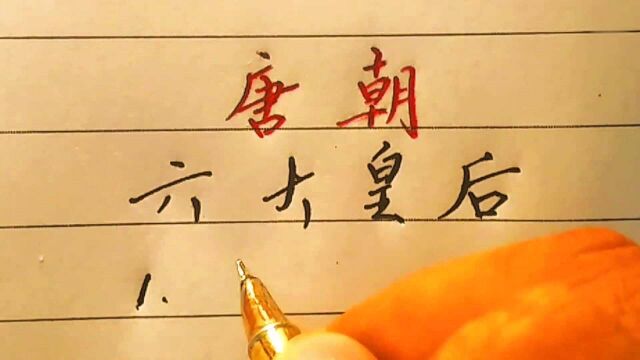 唐朝
六大皇后
1.